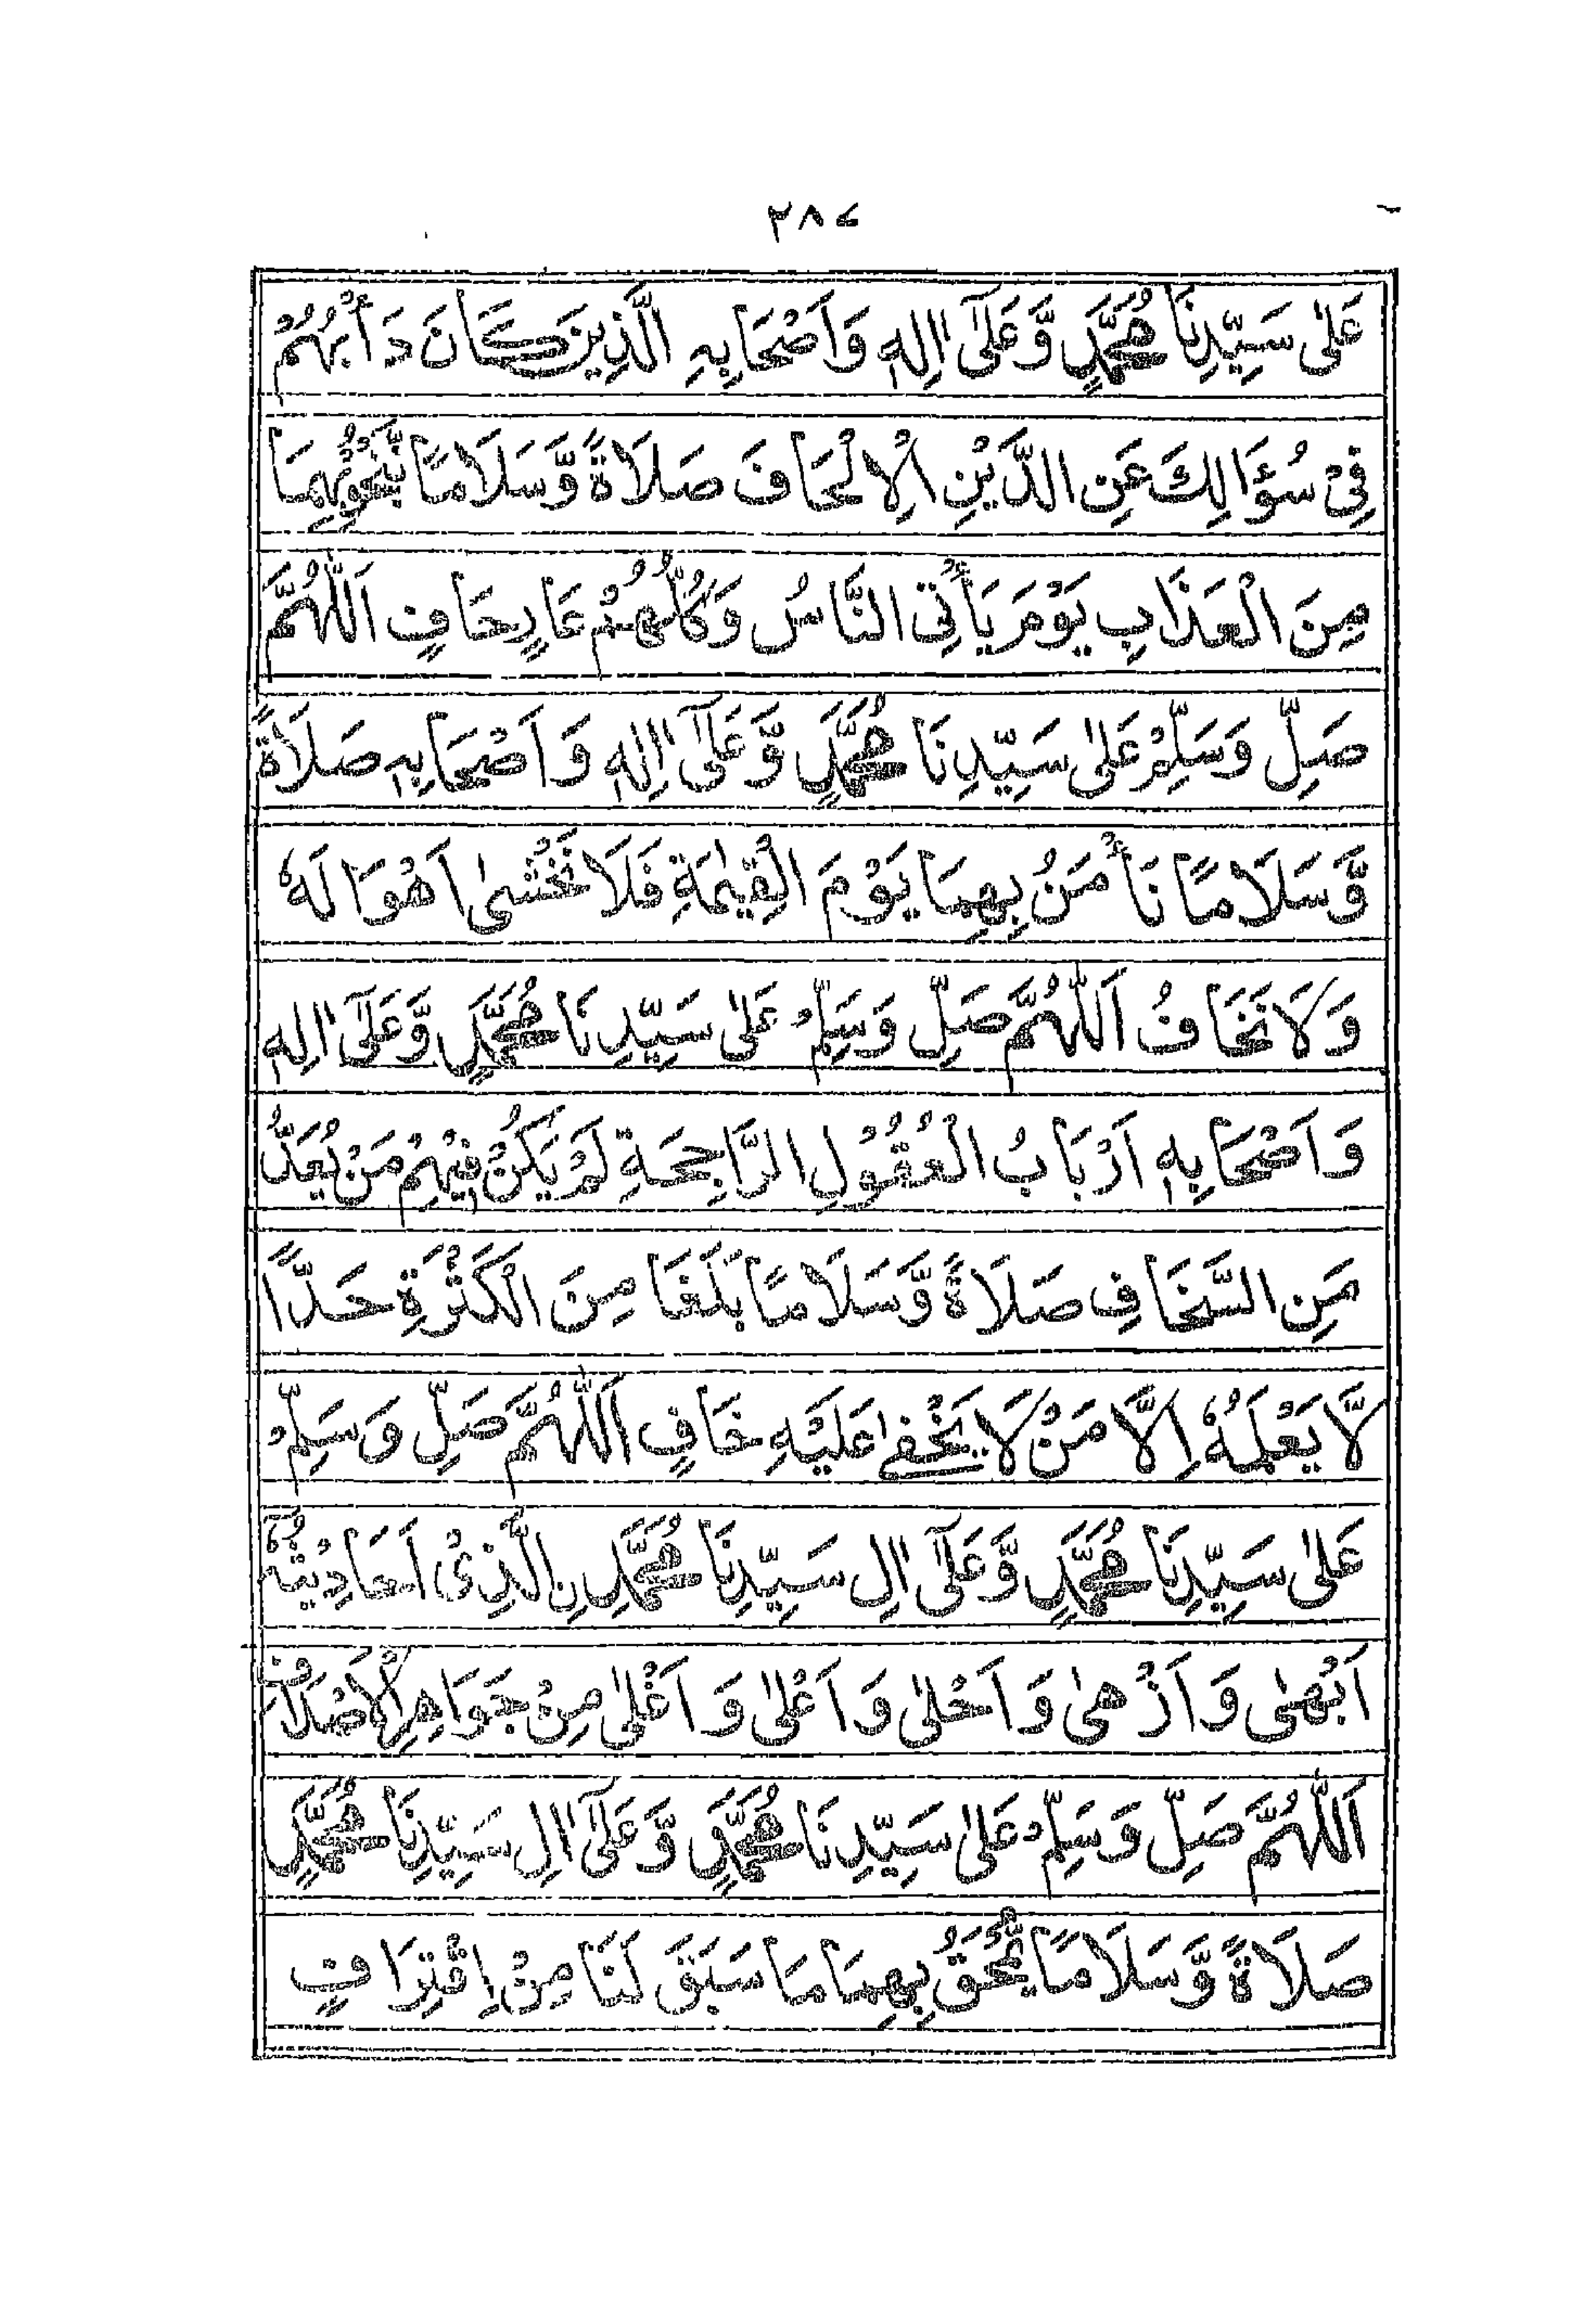 ٢٨٤
عَلٰى سَيِّدِنَا مُحَمَّدٍ وَّعَلٰٓى اٰلِهٖ وَاَصْحَابِهِ الَّذِيْنَ كَانَ دَأْبُهُمْ
فِىْ سُؤَالِكَ عَنِ الدَّيْنِ الْاِلْحَافَ صَلَاةً وَّسَلَامًا نَّنْجُوْبِهِمَا
مِنَ الْعَذَابِ يَوْمَ يَأْتِى النَّاسُ وَكُلُّهُمْ عَارٍ حَافٍ اَللّٰهُمَّ
صَلِّ وَسَلِّمْ عَلٰى سَيِّدِنَا مُحَمَّدٍ وَّعَلٰٓى اٰلِهٖ وَاَصْحَابِهٖ صَلَاةً
وَّسَلَامًا نَأْمَنُ بِهِمَا يَوْمَ الْقِيٰمَةِ فَلَا نَخْشٰى اَهْوَالَهٗ
وَلَا نَخَافُ اَللّٰهُمَّ صَلِّ وَسَلِّمْ عَلٰى سَيِّدِنَا مُحَمَّدٍ وَّعَلٰٓى اٰلِهٖ
وَاَصْحَابِهٖ اَرْبَابُ الْعُقُوْلِ الرَّاجِحَةِ لَمْ يَكُنْ فِيْهِمْ مَنْ يُعَدُّ
مِنَ السَّخَافِ صَلَاةً وَّسَلَامًا بَلَغَا مِنَ الْكَثْرَةِ حَدًّا
لَّا يَعْلَمُهٗ اِلَّا مَنْ لَا يَخْفٰى عَلَيْهِ خَافٍ اَللّٰهُمَّ صَلِّ وَسَلِّمْ
عَلٰى سَيِّدِنَا مُحَمَّدٍ وَّعَلٰٓى اٰلِ سَيِّدِنَا مُحَمَّدِ نِالَّذِىْ اَحَادِيْثُهٗ
اَبْهٰى وَاَزْهٰى وَاَحْلٰى وَاَعْلٰى وَاَغْلٰى مِنْ جَوَاهِرِ الْاَصْدَافِ
اَللّٰهُمَّ صَلِّ وَسَلِّمْ عَلٰى سَيِّدِنَا مُحَمَّدٍ وَّعَلٰٓى اٰلِ سَيِّدِنَا مُحَمَّدٍ
صَلَاةً وَّسَلَامًا يُّمْحَقُ بِهِمَا مَا سَبَقَ لَنَا مِنْ اِقْتِرَافٍ